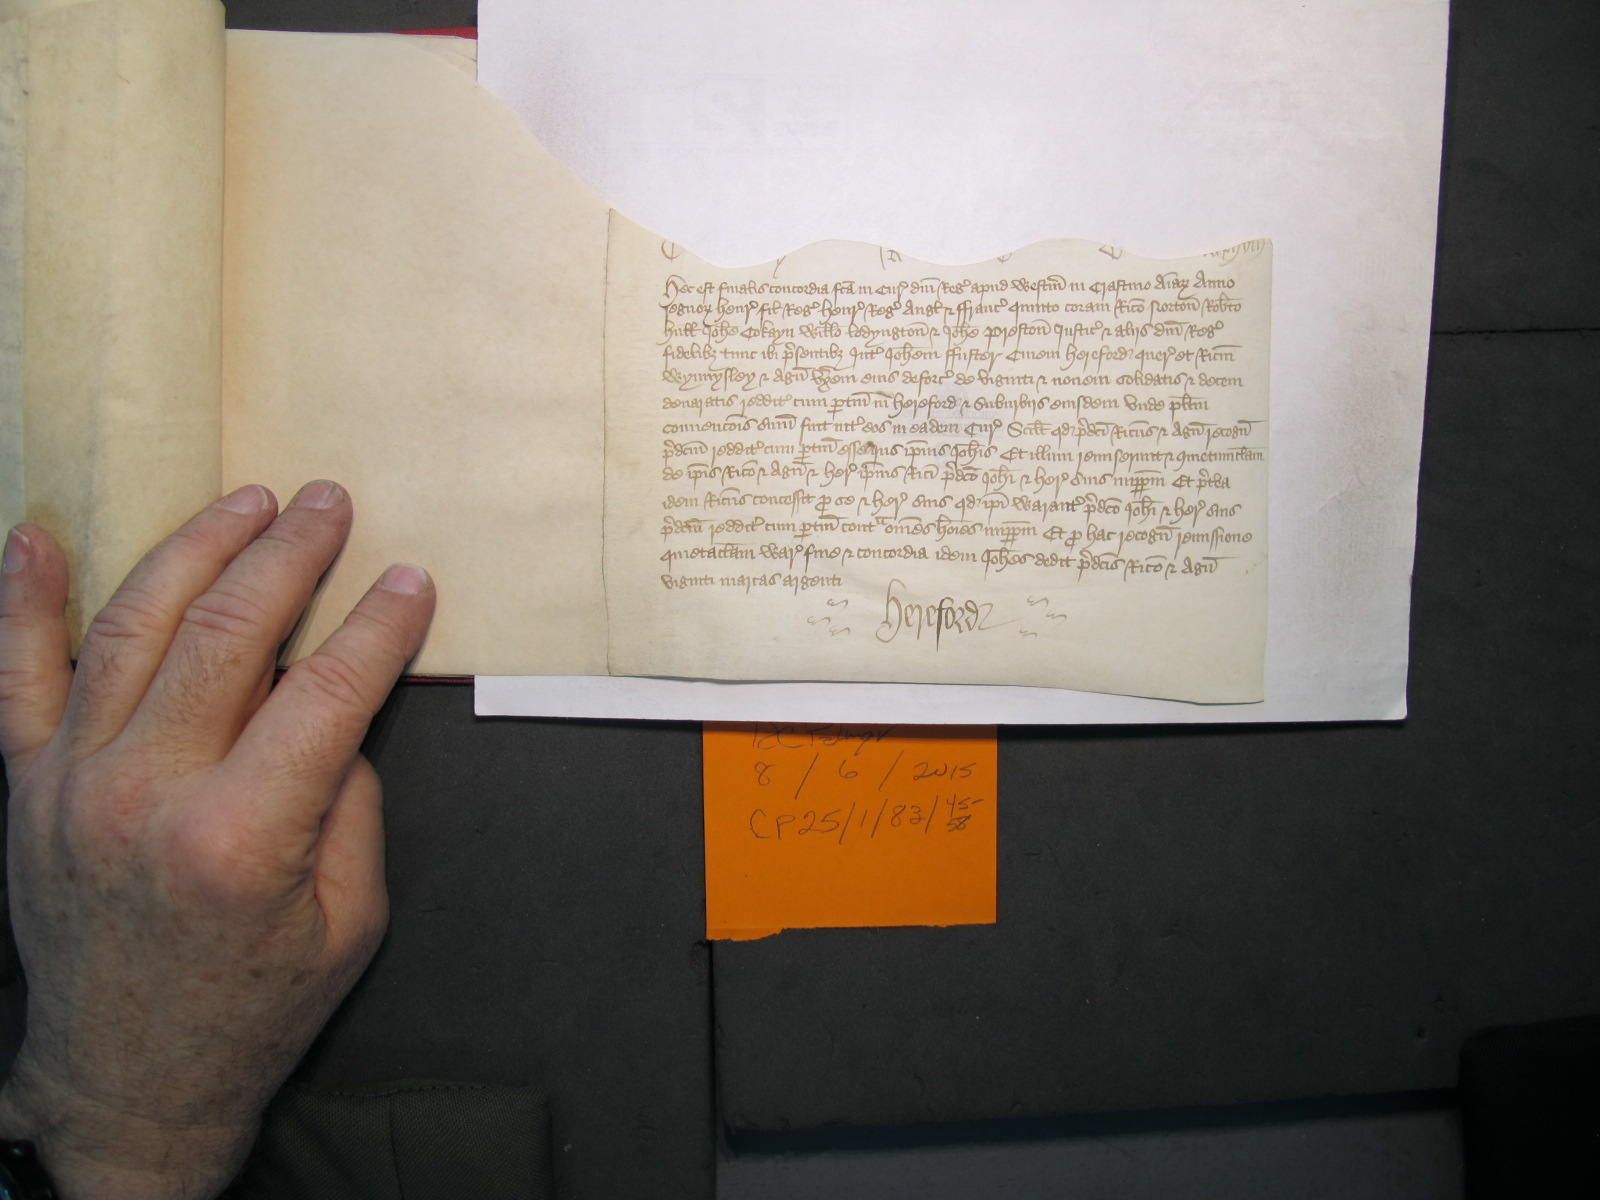 Hec est finalis concordia fc̄a in Cur' dn̄i Reg' apud Westm̄ in Crastino Aīaꝝ Anno
regnoꝝ Henr' fil' Reg' Henr' Reg' Angl' & Ffranc' quinto coram Ric̄o Norton̄ Rob̄to
Hull' Joh̄e Cokayn Will̄o lodyngton̄ & Joh̄e Preston̄ Justic' & aliis dn̄i Reg'
fidelibȝ tunc ibi p̄sentibȝ Int' Joh̄em ffuster Ciuem Hereford' quer' et Ric̄m
Wynnysley & Agn̄ vx̄em eius deforc' de viginti & nouem solidatis & decem
denariatis reddit' cum ptin̄ in Hereford' & Suburbiis eiusdem Vnde pl̄itm̄
conuenc̄ois sum̄ fuit int' eos in eadem Cur' Scil̄t qd p̄dc̄i Ric̄us & Agn̄ recogn̄
p̄dc̄m reddit' cum ptin̄ esse ius ip̄ius Joh̄is Et illum remiserunt & quietumclam̄
de ip̄is Ric̄o & Agn̄ & her' ip̄ius Ric̄i p̄dc̄o Joh̄i & her' suis imppm̄ Et p̄t̄ea
idem Ric̄us concessit p se & her' suis qd ip̄i Warant' p̄dc̄o Joh̄i & her' suis
p̄dc̄m reddit' cum ptin̄ contᵃ om̄es hoīes imppm̄ Et p hac recogn̄ remissione
quietaclam̄ War' fine & concordia idem Joh̄es dedit p̄dc̄is Ric̄o & Agn̄
viginti marcas argenti
Hereford'
8 / 6 / 2015
CP25/1/83/45-
58